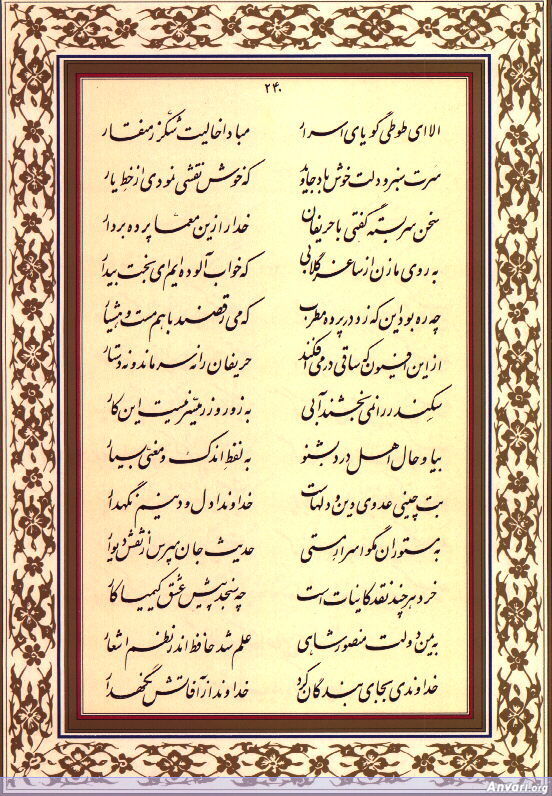 ۲۴۰
الا ای طوطی گویای اسرار مبادا خالیت شکّر ز منقار
سرت سبز و دلت خوش باد جاوید که خوش نقشی نمودی از خط یار
سخن سربسته گفتی با حریفان خدا را زین معمّا پرده بردار
به روی ما زن از ساغر گلابی که خواب آلوده ایم ای بخت بیدار
چه ره بود این که زد در پرده مطرب که می رقصند با هم مست و هشیار
از این افیون که ساقی در می افکند حریفان را نه سر ماند و نه دستار
سکندر را نمی بخشند آبی به زور و زر میسّر نیست این کار
بیا و حال اهل درد بشنو به لفظ اندک و معنی بسیار
بت چینی عدوی دین و دلهاست خداوندا دل و دینم نگهدار
به مستوران مگو اسرار مستی حدیث جان مپرس از نقش دیوار
خرد هر چند نقد کاینات است چه سنجد پیش عشق کیمیا کار
به یمن دولت منصور شاهی علم شد حافظ اندر نظم اشعار
خداوندی بجای بندگان کرد خداوندا ز آفاتش نگهدار
Anvari.org